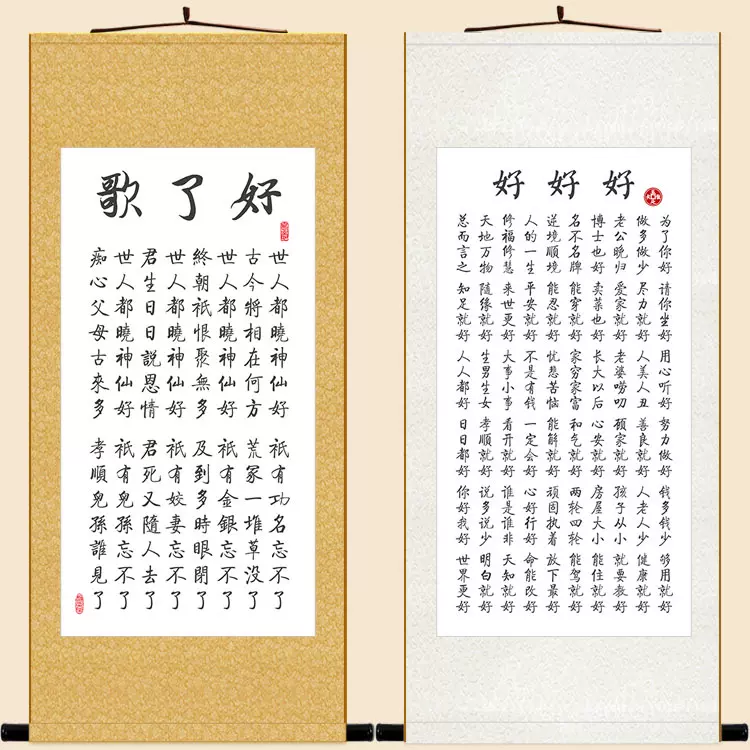 好了歌
世人都曉神仙好 祇有功名忘不了
古今將相在何方 荒冢一堆草沒了
世人都曉神仙好 祇有金銀忘不了
終朝祇恨聚無多 及到多時眼閉了
世人都曉神仙好 祇有姣妻忘不了
君生日日說恩情 君死又隨人去了
世人都曉神仙好 祇有兒孫忘不了
痴心父母古來多 孝順兒孫誰見了
好好好
为了你好 请你坐好 用心听好 努力做好 钱多钱少 够用就好
做多做少 尽力就好 人美人丑 善良就好 人老人少 健康就好
老公晚归 爱家就好 老婆唠叨 顾家就好 孩子从小 就要教好
博士也好 卖菜也好 长大以后 心安就好 房屋大小 能住就好
名不名牌 能穿就好 家穷家富 和气就好 两轮四轮 能驾就好
逆境顺境 能忍就好 忧悲苦恼 能解就好 顽固执着 放下最好
人的一生 平安就好 不是有钱 一定会好 心好行好 命能改好
修福修慧 来世更好 大事小事 看开就好 谁是谁非 天知就好
天地万物 随缘就好 生男生女 孝顺就好 说多说少 明白就好
总而言之 知足就好 人人都好 日日都好 你好我好 世界更好